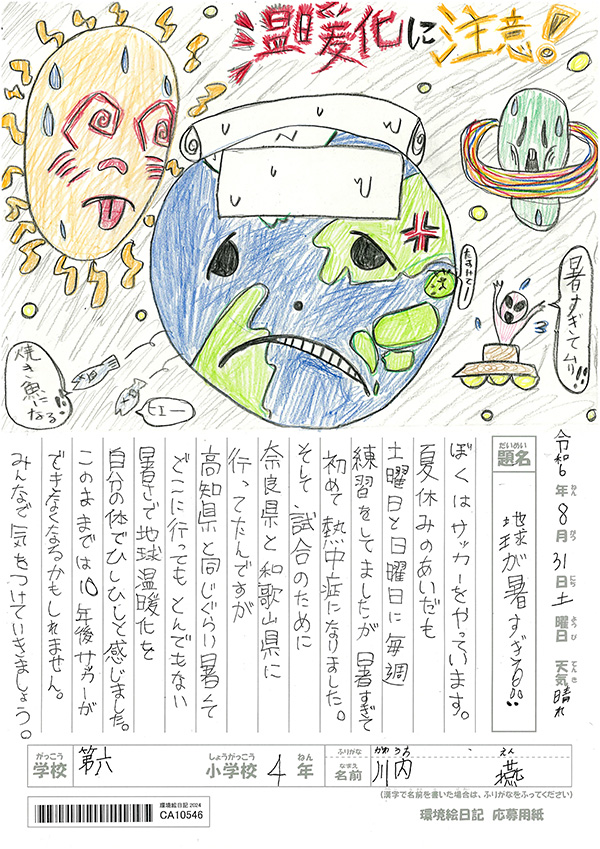 温暖化に注意!
たすけてー
暑すぎてムリ!!
焼き魚になる!!
ヒエー
令和6年8月31日土曜日 天気 晴れ
ねん
がつ
にち
ようび
てんき
だいめい
題名
地球が暑すぎる!!
ぼくはサッカーをやっています。
夏休みのあいだも
土曜日と日曜日に毎週
練習をしてましたが暑すぎて
初めて熱中症になりました。
そして試合のために
奈良県と和歌山県に
行ってたんですが
高知県と同じぐらい暑くて
どこに行ってもとんでもない
暑さで地球温暖化を
自分の体でひしひしと感じました。
このままでは10年後サッカーが
できなくなるかもしれません。
みんなで気をつけていきましょう。
がっこう
学校 第六
しょうがっこう
小学校 4
ねん
年
ふりがな かわうち えん
なまえ
名前 川内 燕
(漢字で名前を書いた場合は、ふりがなをふってください)
環境絵日記 2024
CA10546
環境絵日記 応募用紙